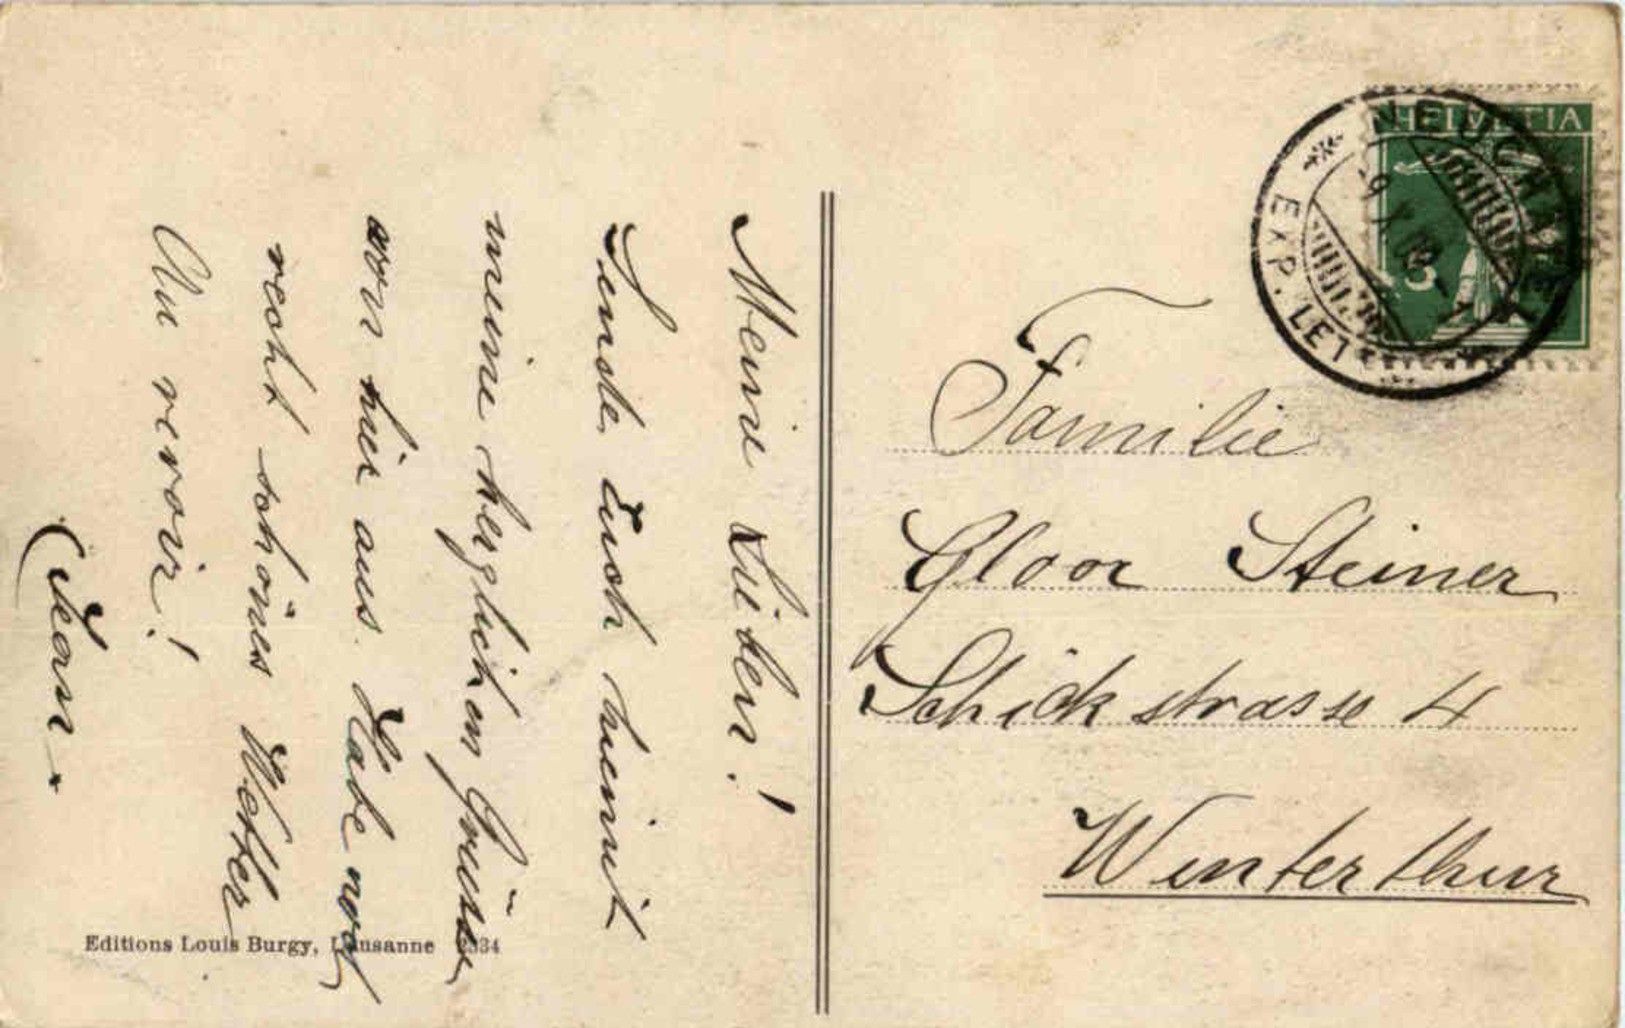 Meine Lieben!
Sende Euch hiemit
meine herzlichen Grüsse
von hier aus. Habe noch
recht schönes Wetter
Au revoir!
Jean.
Editions Louis Burgy, Lausanne 2334
HELVETIA
5
NEUCHATEL
EXP. LET
Familie
Gloor Steiner
Schickstrasse 4
Winterthur